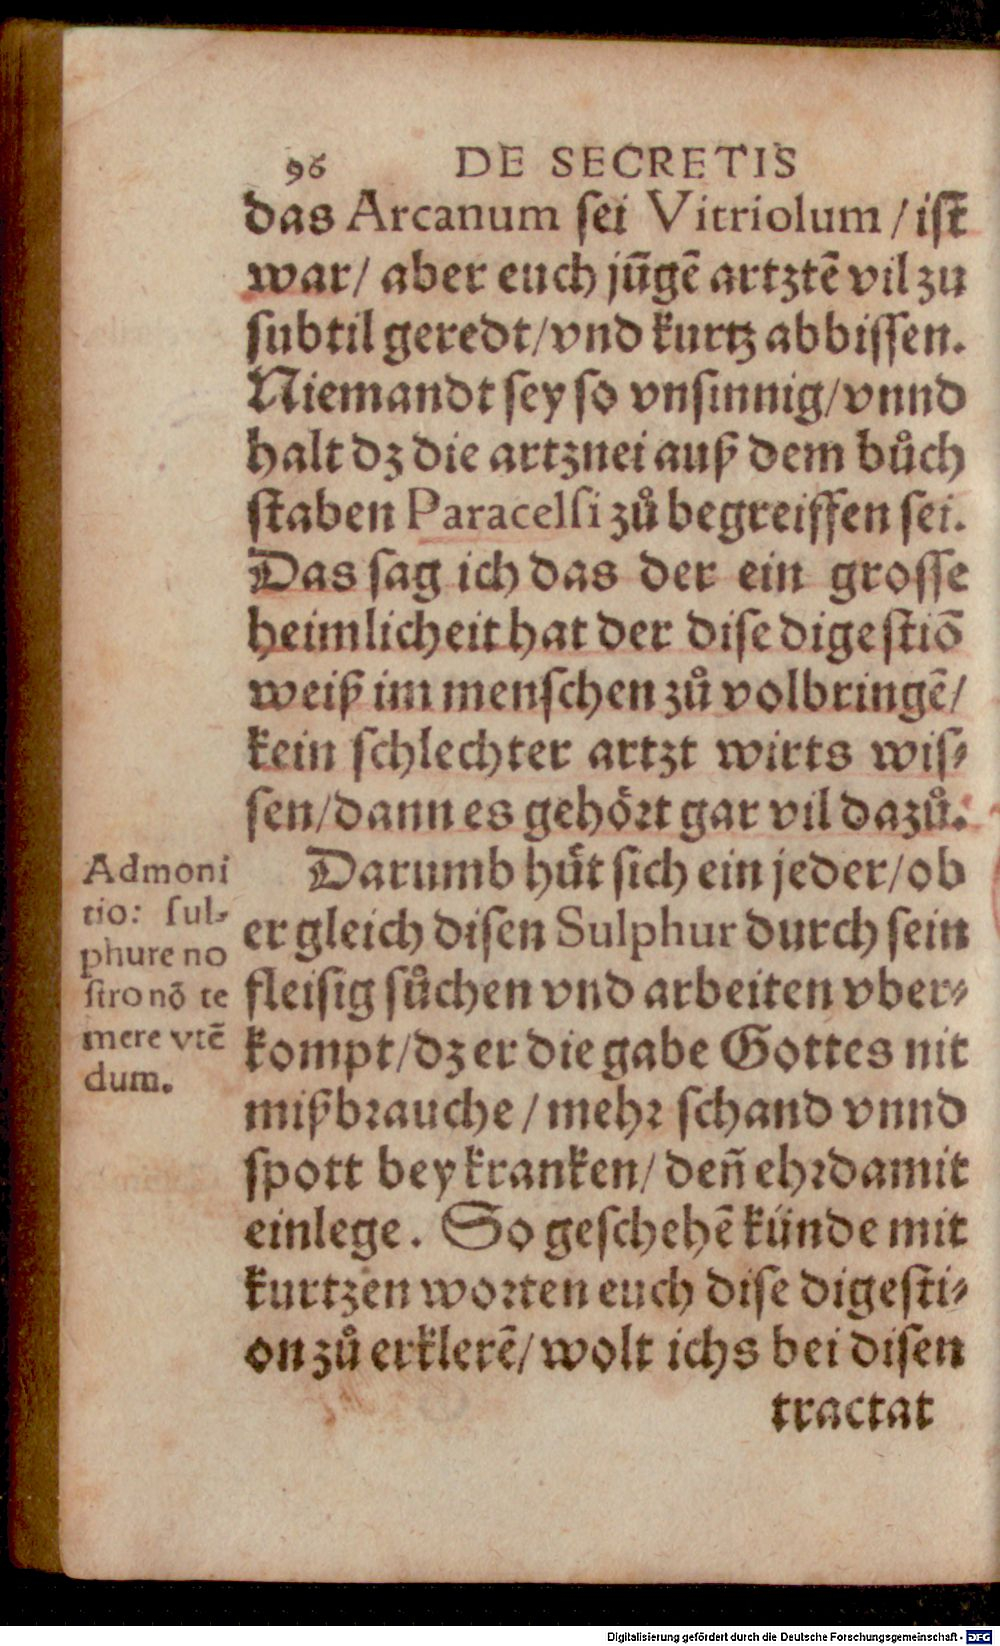 96 DE SECRETIS
das Arcanum sei Vitriolum / ist
war / aber euch jūgē artztē vil zu
subtil geredt / vnd kurtz abbissen.
Niemandt sey so vnsinnig / vnnd
halt dz die artznei auß dem bůch
staben Paracelsi zů begreiffen sei.
Das sag ich das der ein grosse
heimlicheit hat der dise digestiō
weiß im menschen zů volbringē /
kein schlechter artzt wirts wis⸗
sen / dann es gehört gar vil dazů.
Darumb hüt sich ein jeder / ob
er gleich disen Sulphur durch sein
fleisig sůchen vnd arbeiten vber⸗
kompt / dz er die gabe Gottes nit
mißbrauche / mehr schand vnnd
spott bey kranken / deñ ehr damit
einlege. So geschehē künde mit
kurtzen worten euch dise digesti⸗
on zů erklerē / wolt ichs bei disen
tractat
Admoni
tio: sul⸗
phure no
stro nō te
mere vtē
dum.
Digitalisierung gefördert durch die Deutsche Forschungsgemeinschaft - DFG